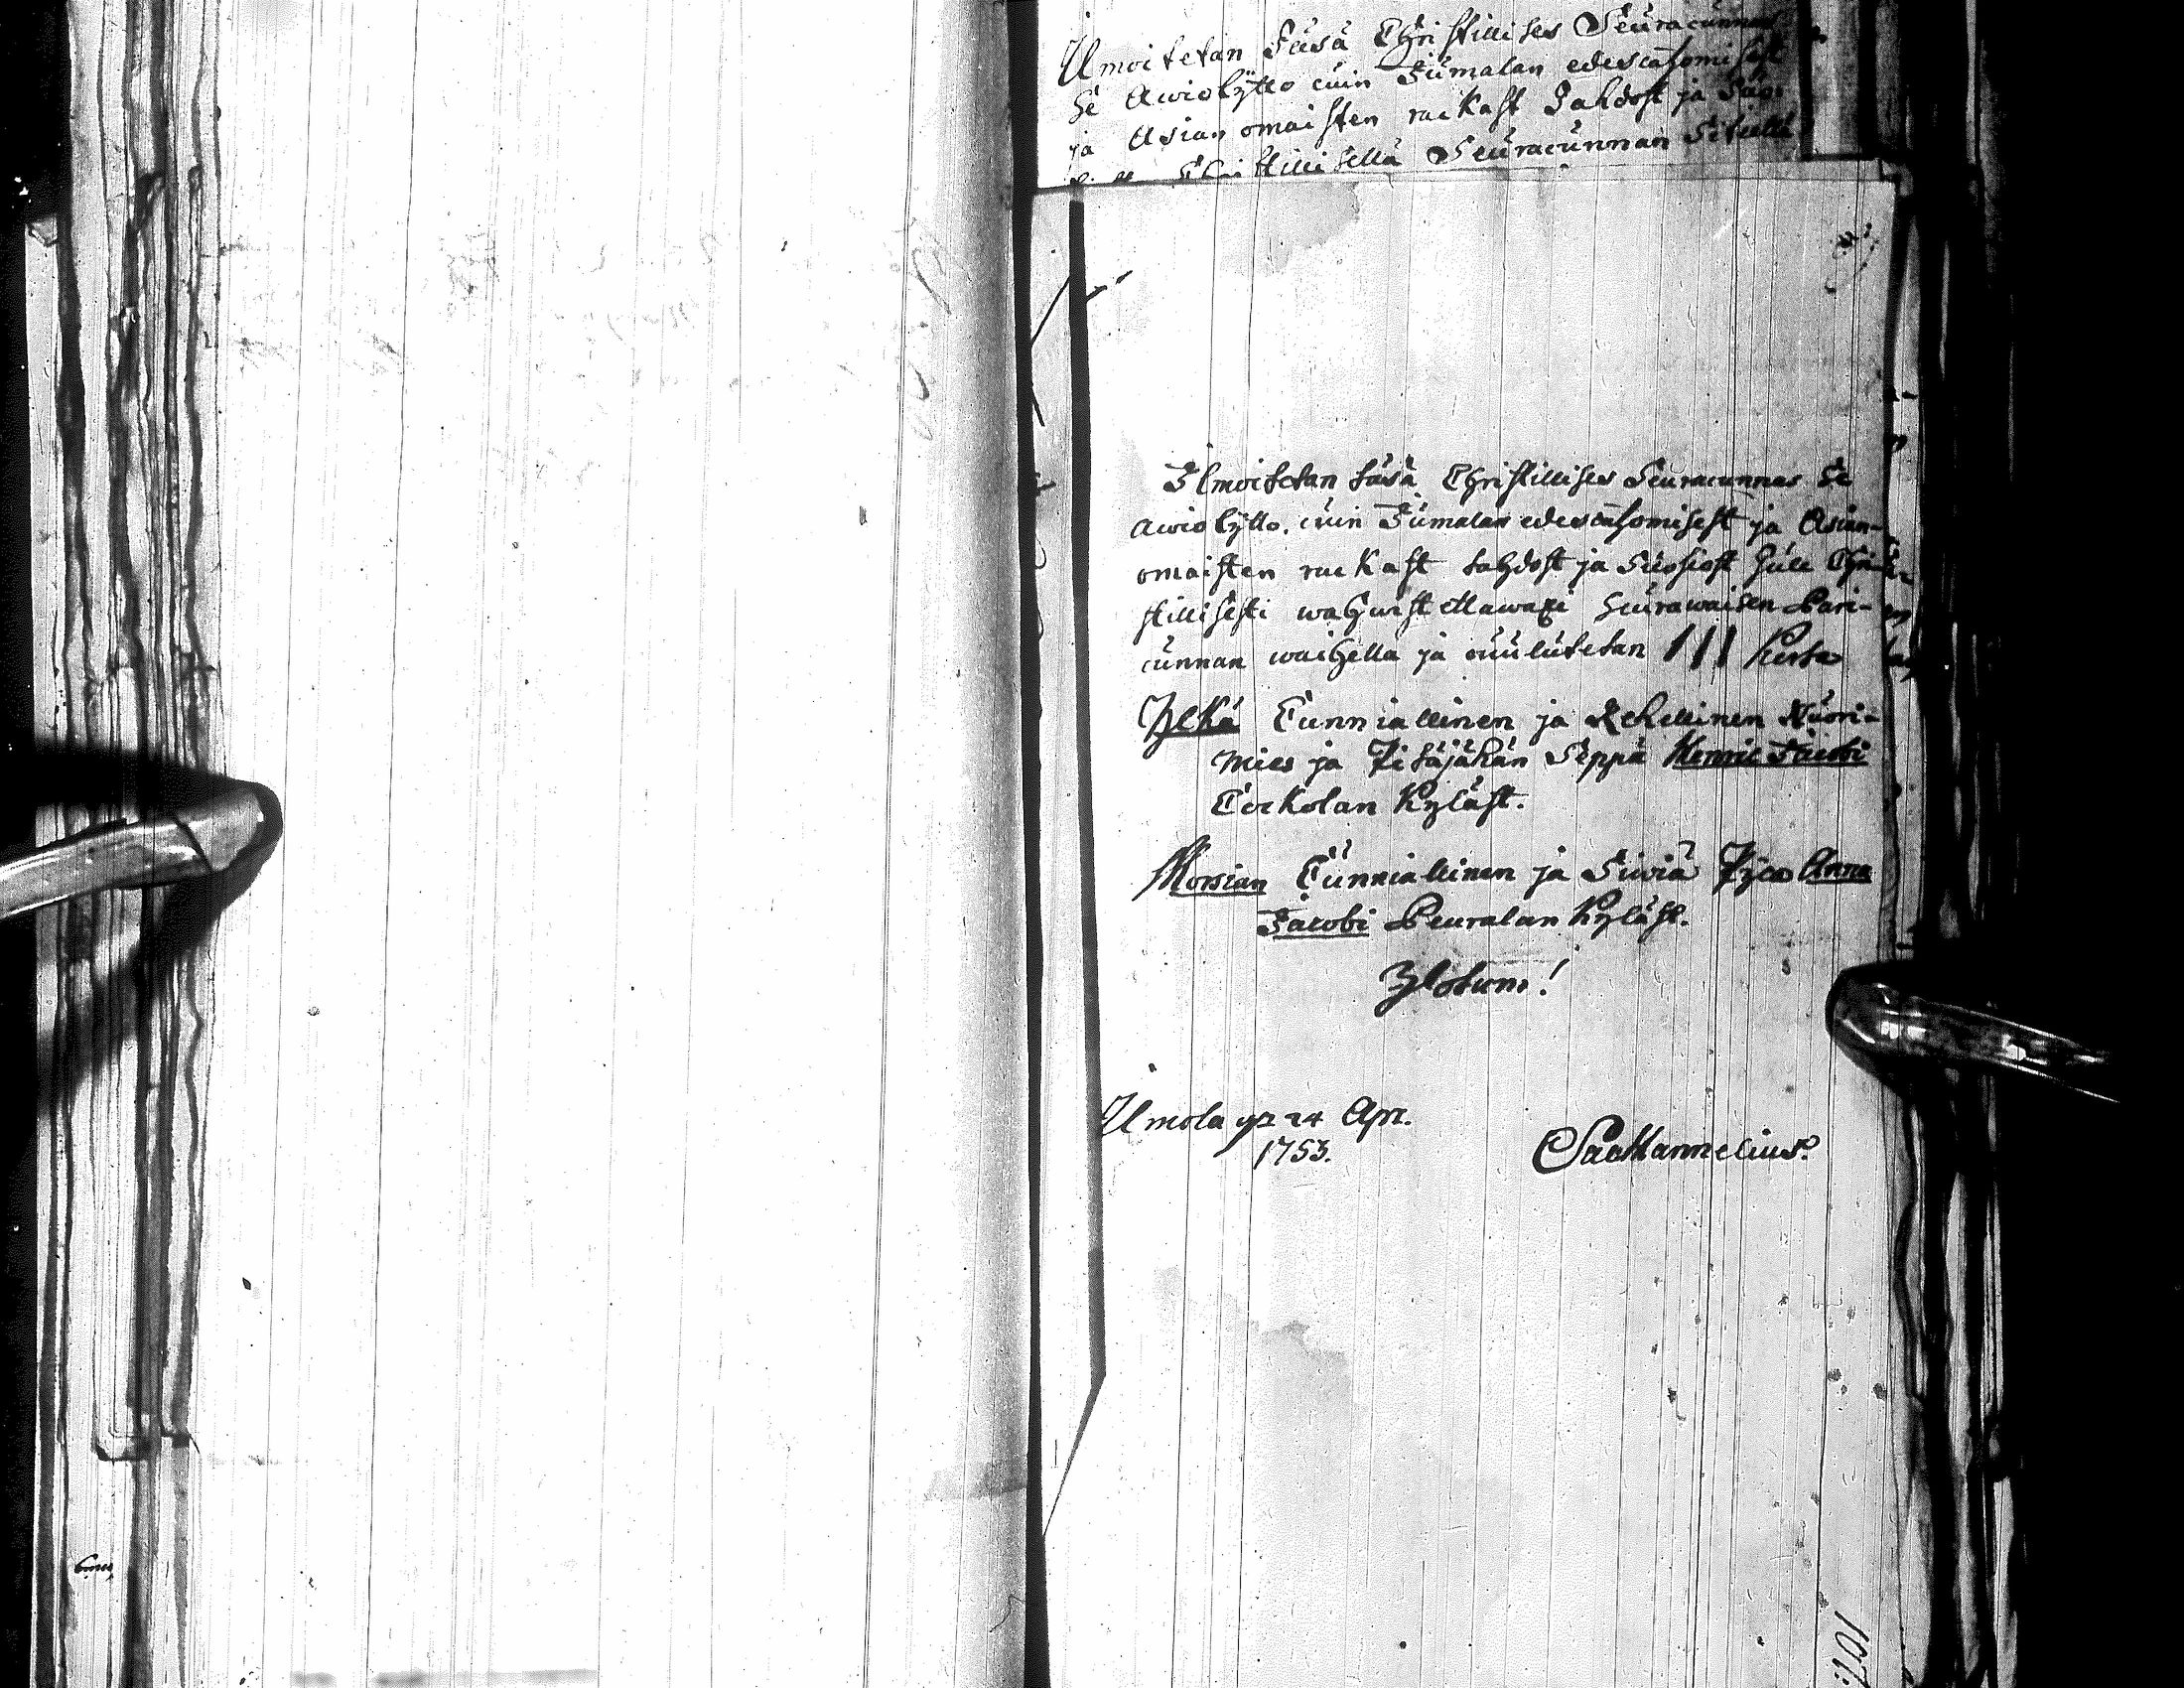 Ilmoitetan Täsä Christillises Seuracunnas
Se Awiokäsky cuin Jumalan edescatsomisest
ja Asian omaisten rackast Tahdost ja Suo-
Christillisellä Seuracunnan
Ilmoitetan täsä Christillises Seuracunnas Se
awiokäsky, cuin Jumalan edescatsomisest ja Asian-
omaisten rackast tahdost ja Suosiost
stillisesti wahwistettawaxi Seurawaisen Pari-
cunnan waihella ja cuulutetan III Kerta
Ylkä Cunniallinen ja Rehellinen Nuori-
mies ja Pitäjähän Seppä Henric Jacobi
Cockolan Kyläst.
Morsian Cunniallinen ja Siwiä Pijca Anna
Jacobi Peuralan Kyläst.
Ilmola 24 Apr.
1753.
107.